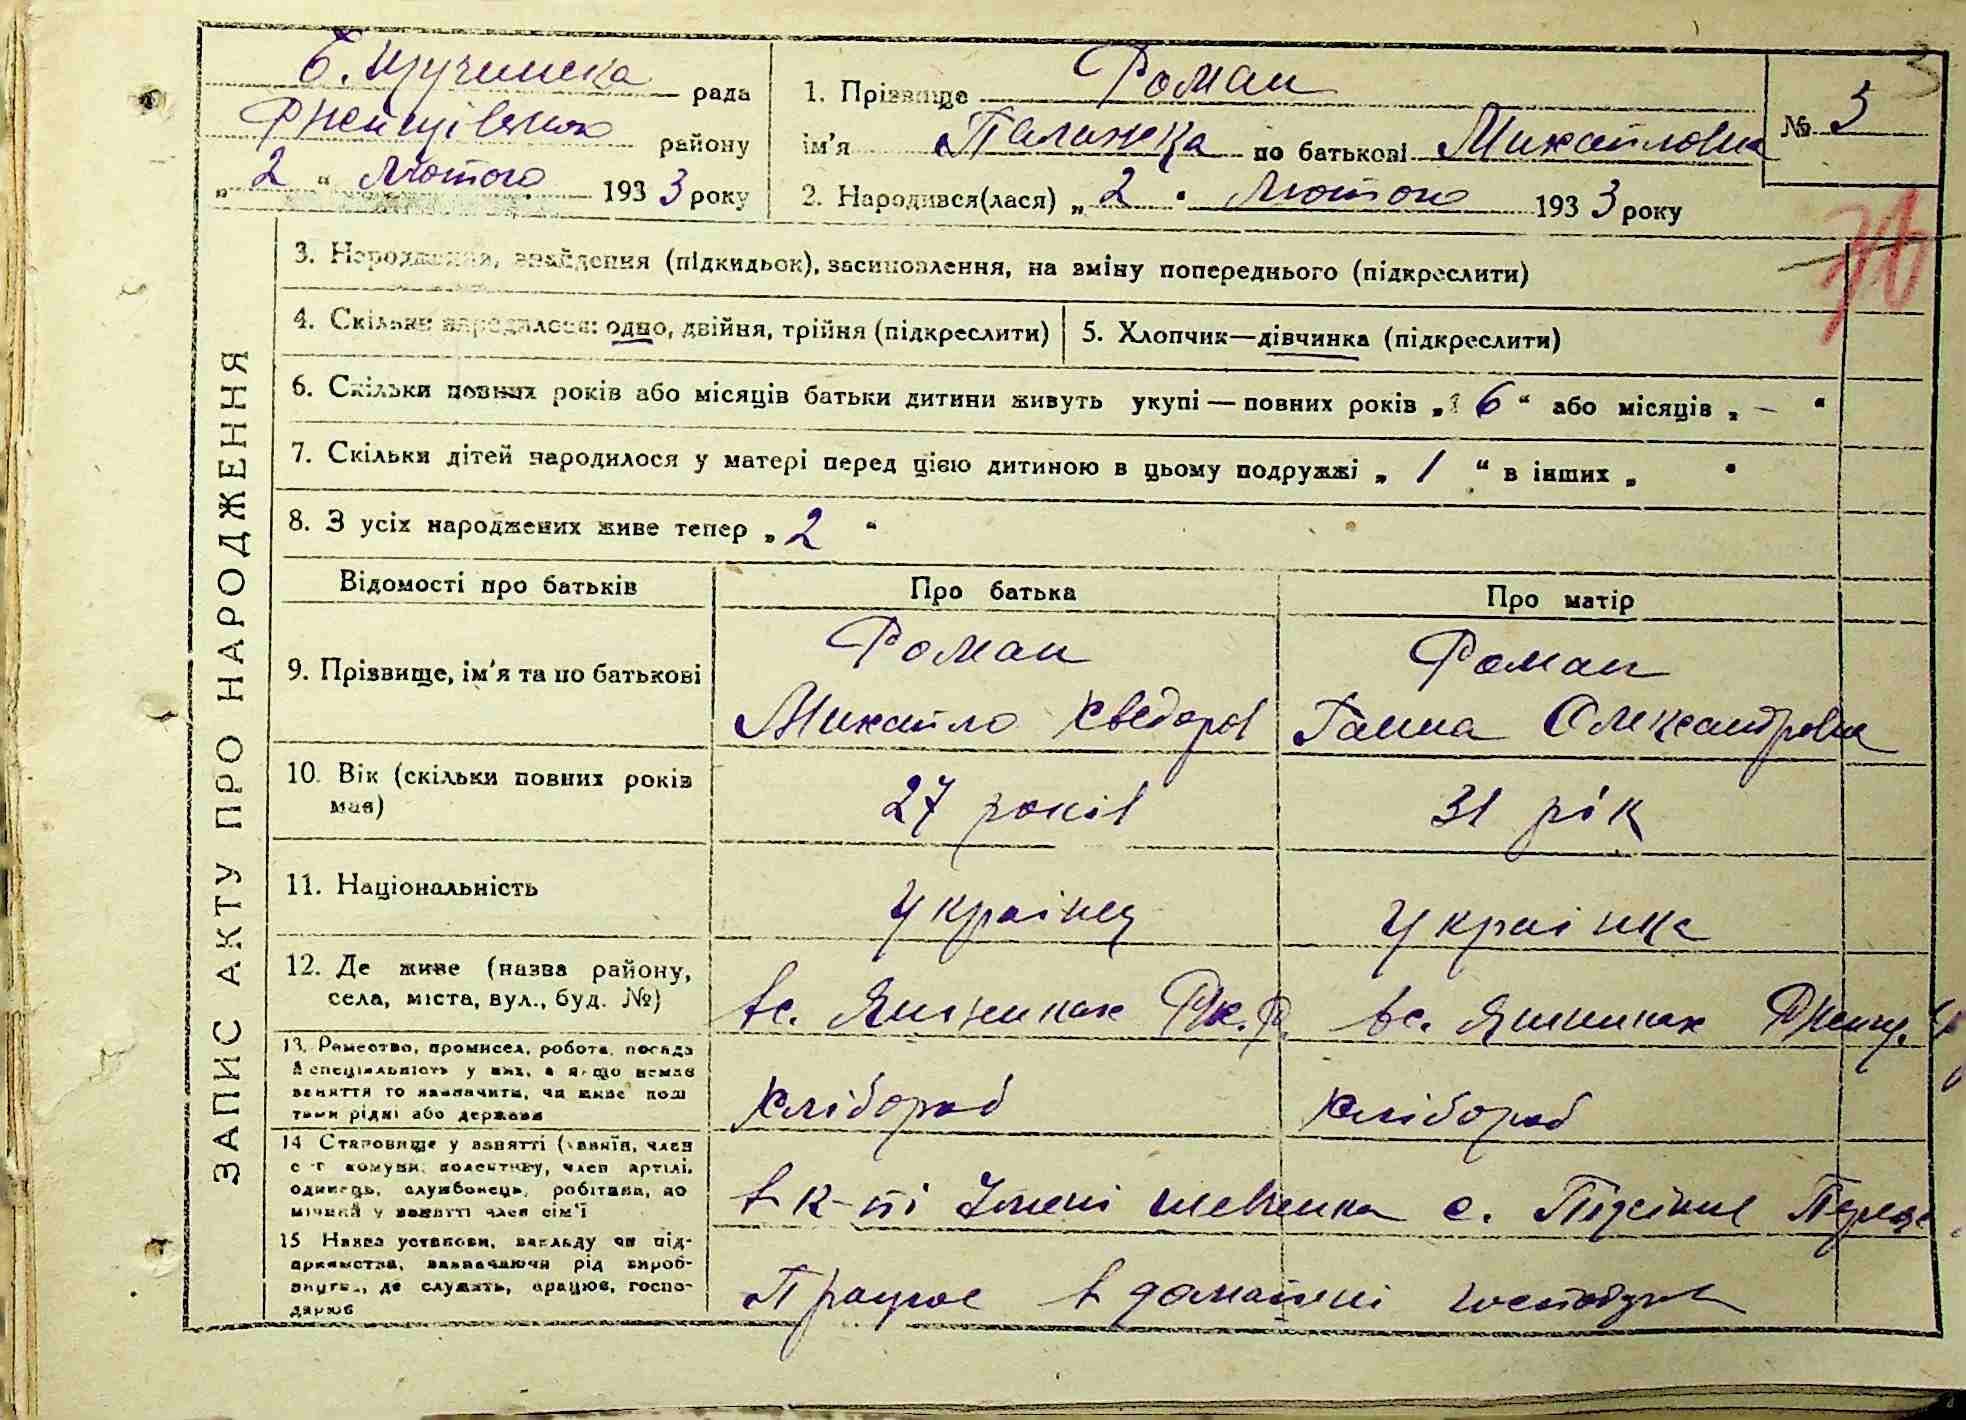 Б. Щучинська рада
Ржищівського району
„ 2 “ Лютого 193 3 року
1. Прізвище Роман
ім'я Палажка по батькові Михайловна
2. Народився(лася) „ 2 “ Лютого 193 3 року
№ 5
3. Народження, знайдення (підкидьок), засиновлення, на зміну попереднього (підкреслити)
4. Скільки народилося: одно, двійня, трійня (підкреслити)
5. Хлопчик—дівчинка (підкреслити)
6. Скільки повних років або місяців батьки дитини живуть укупі — повних років „ 6 “ або місяців „ — “
7. Скільки дітей народилося у матері перед цією дитиною в цьому подружжі „ 1 “ в інших „ “
8. З усіх народжених живе тепер „ 2 “
ЗАПИС АКТУ ПРО НАРОДЖЕННЯ
Відомості про батьків
Про батька
Про матір
9. Прізвище, ім'я та по батькові
Роман
Михайло Хведоров
Роман
Ганна Олександровна
10. Вік (скільки повних років
має)
27 років
31 рік
11. Національність
Українец
Українка
12. Де живе (назва району,
села, міста, вул., буд. №)
в с.
в с.
13. Ремество, промисел, робота, посада
й спеціяльність у них, а якщо немає
заняття то зазначити, чи живе кош
тами рідні або держави
Хлібороб
Хлібороб
14 Становище у занятті (хазяїн, член
с-г комуни, колективу, член артілі,
одинець, службовець, робітник, до
міжний у занятті член сім'ї
в к-ті Імені Шевченка с.
15 Назва установи, закладу чи під-
приємства, зазначаючи рід вироб-
ництва, де служить, працює, госпо-
дарює
Працює в домашні господарст